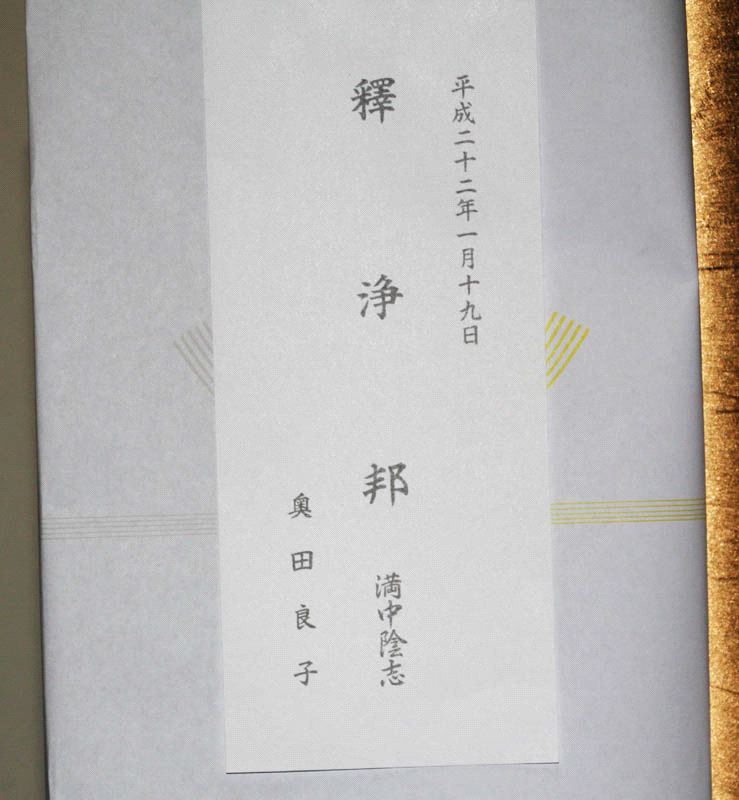 平成二十二年一月十九日
釋浄邦
満中陰志
奥田良子